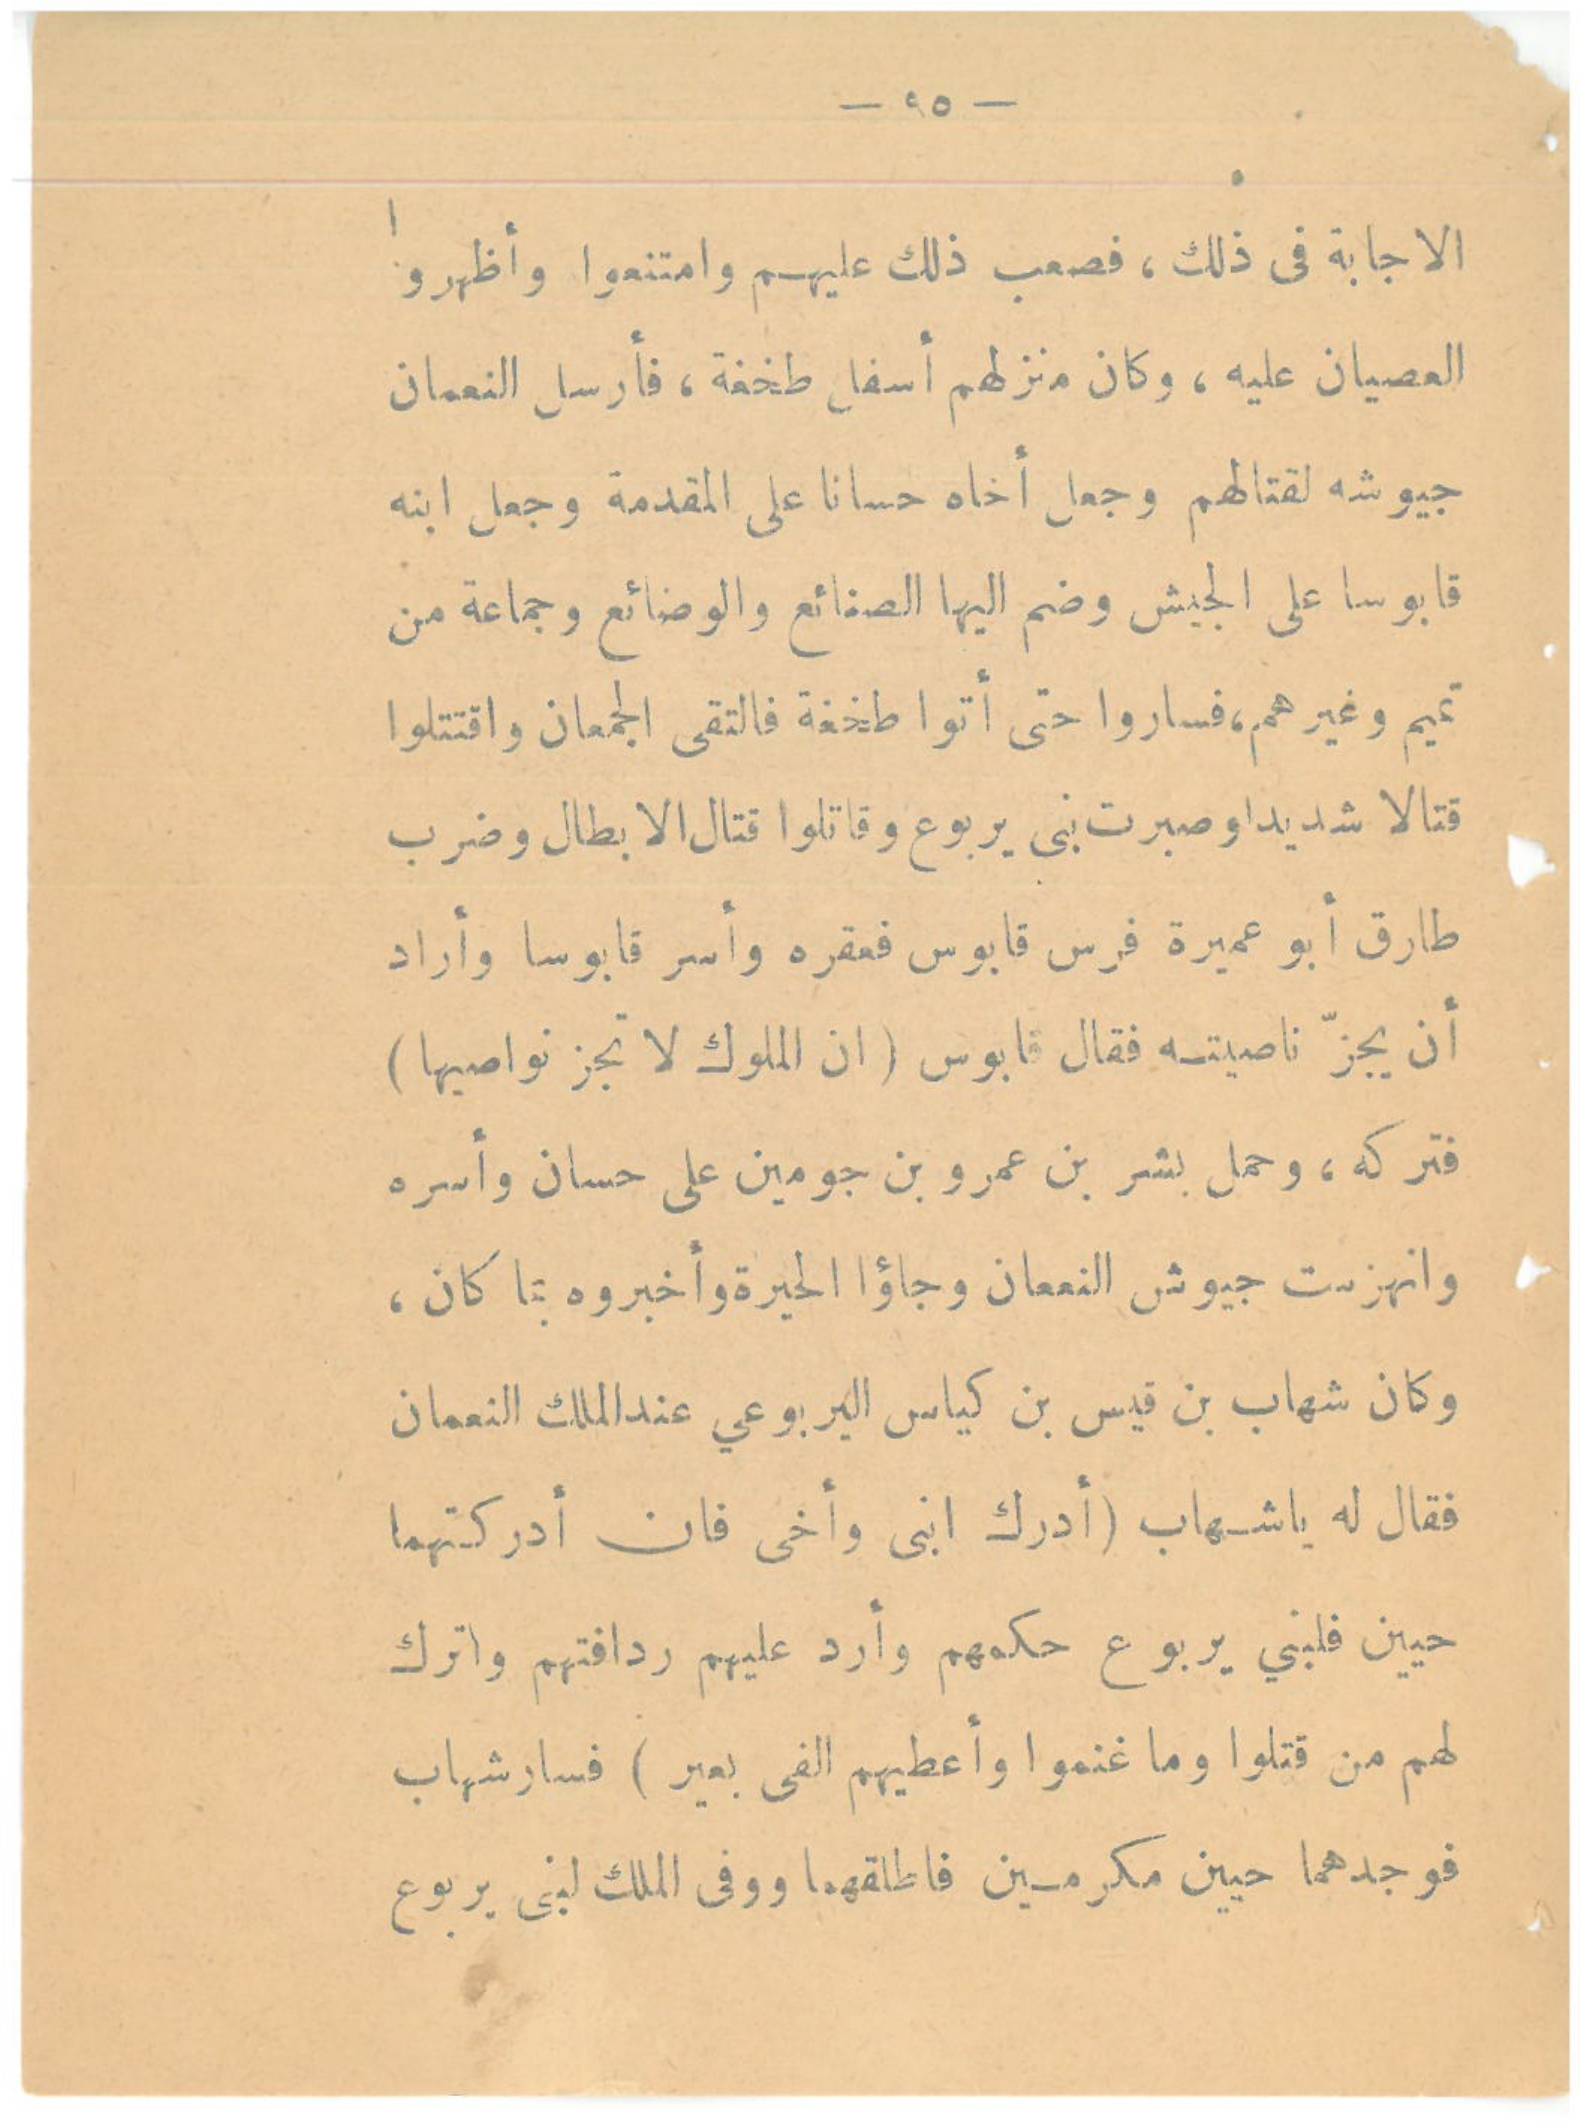 — ٩٥ —
الاجابة فى ذلك ، فصعب ذلك عليهم وامتنعوا وأظهروا
العصيان عليه ، وكان منزلهم أسفل طخفة ، فأرسل النعمان
جيوشه لقتالهم وجعل أخاه حسانا على المقدمة وجعل ابنه
قابوسا على الجيش وضم اليها الصنائع والوضائع وجماعة من
تميم وغيرهم ، فساروا حتى أتوا طخفة فالتقى الجمعان واقتتلوا
قتالا شديدا وصبرت بنى يربوع وقاتلوا قتال الابطال وضرب
طارق أبو عميرة فرس قابوس فعقره وأسر قابوسا وأراد
أن يجزّ ناصيته فقال قابوس ( ان الملوك لا تجز نواصيها )
فتركه ، وحمل بشر بن عمرو بن جومين على حسان وأسره
وانهزمت جيوش النعمان وجاؤا الحيرة وأخبروه بما كان ،
وكان شهاب بن قيس بن كياس اليربوعي عند الملك النعمان
فقال له ياشهاب ( أدرك ابنى وأخى فان أدركتهما
حيين فلبني يربوع حكمهم وأرد عليهم ردافتهم واترك
لهم من قتلوا وما غنموا وأعطيهم الفى بعير ) فسار شهاب
فوجدهما حيين مكرمين فاطلقهما ووفى الملك لبنى يربوع